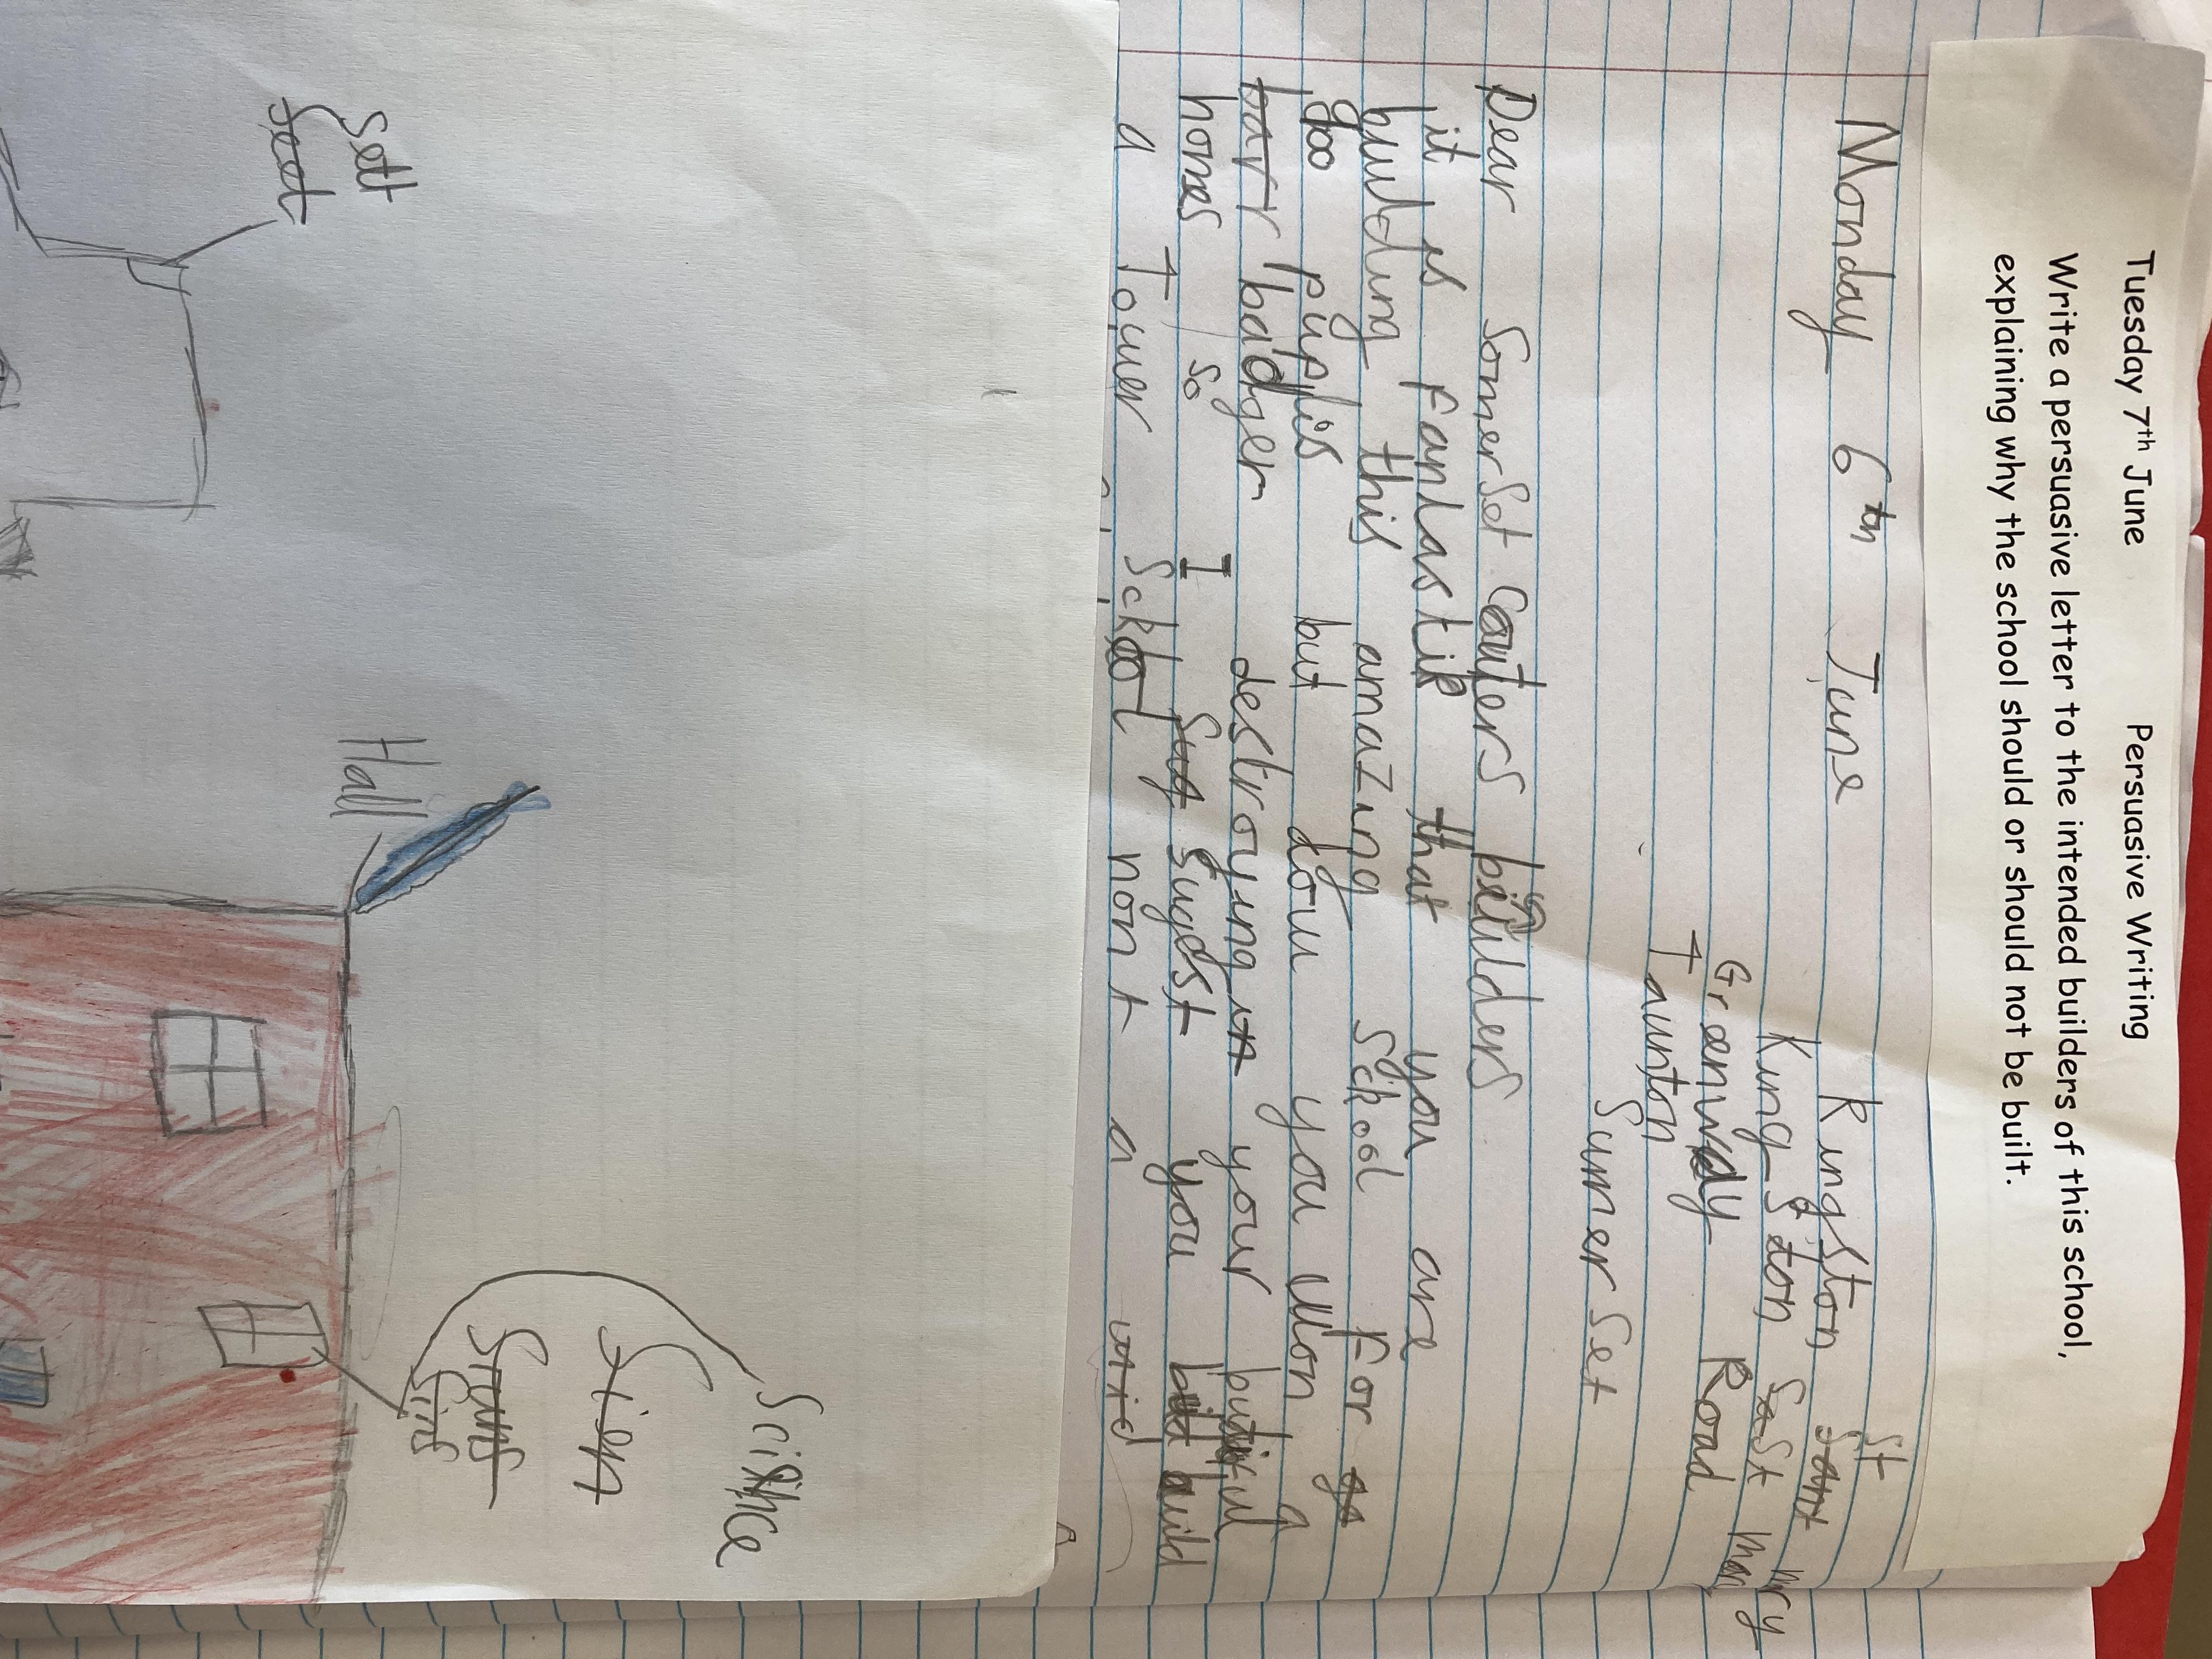 Tuesday 7th June Persuasive Writing
Write a persuasive letter to the intended builders of this school,
explaining why the school should or should not be built.
Monday 6th June
Kingston St
Kingston St Mary
Greenway Road
Taunton
Sumer Set
Dear SomerSet Couters builders
it is fanlastik that you are
building this amazing School For
goo pupli's but dou you won a
badger destroying your butiful
homes so I Sugest you build
a Touer School nont a
Sett
Hall
Science